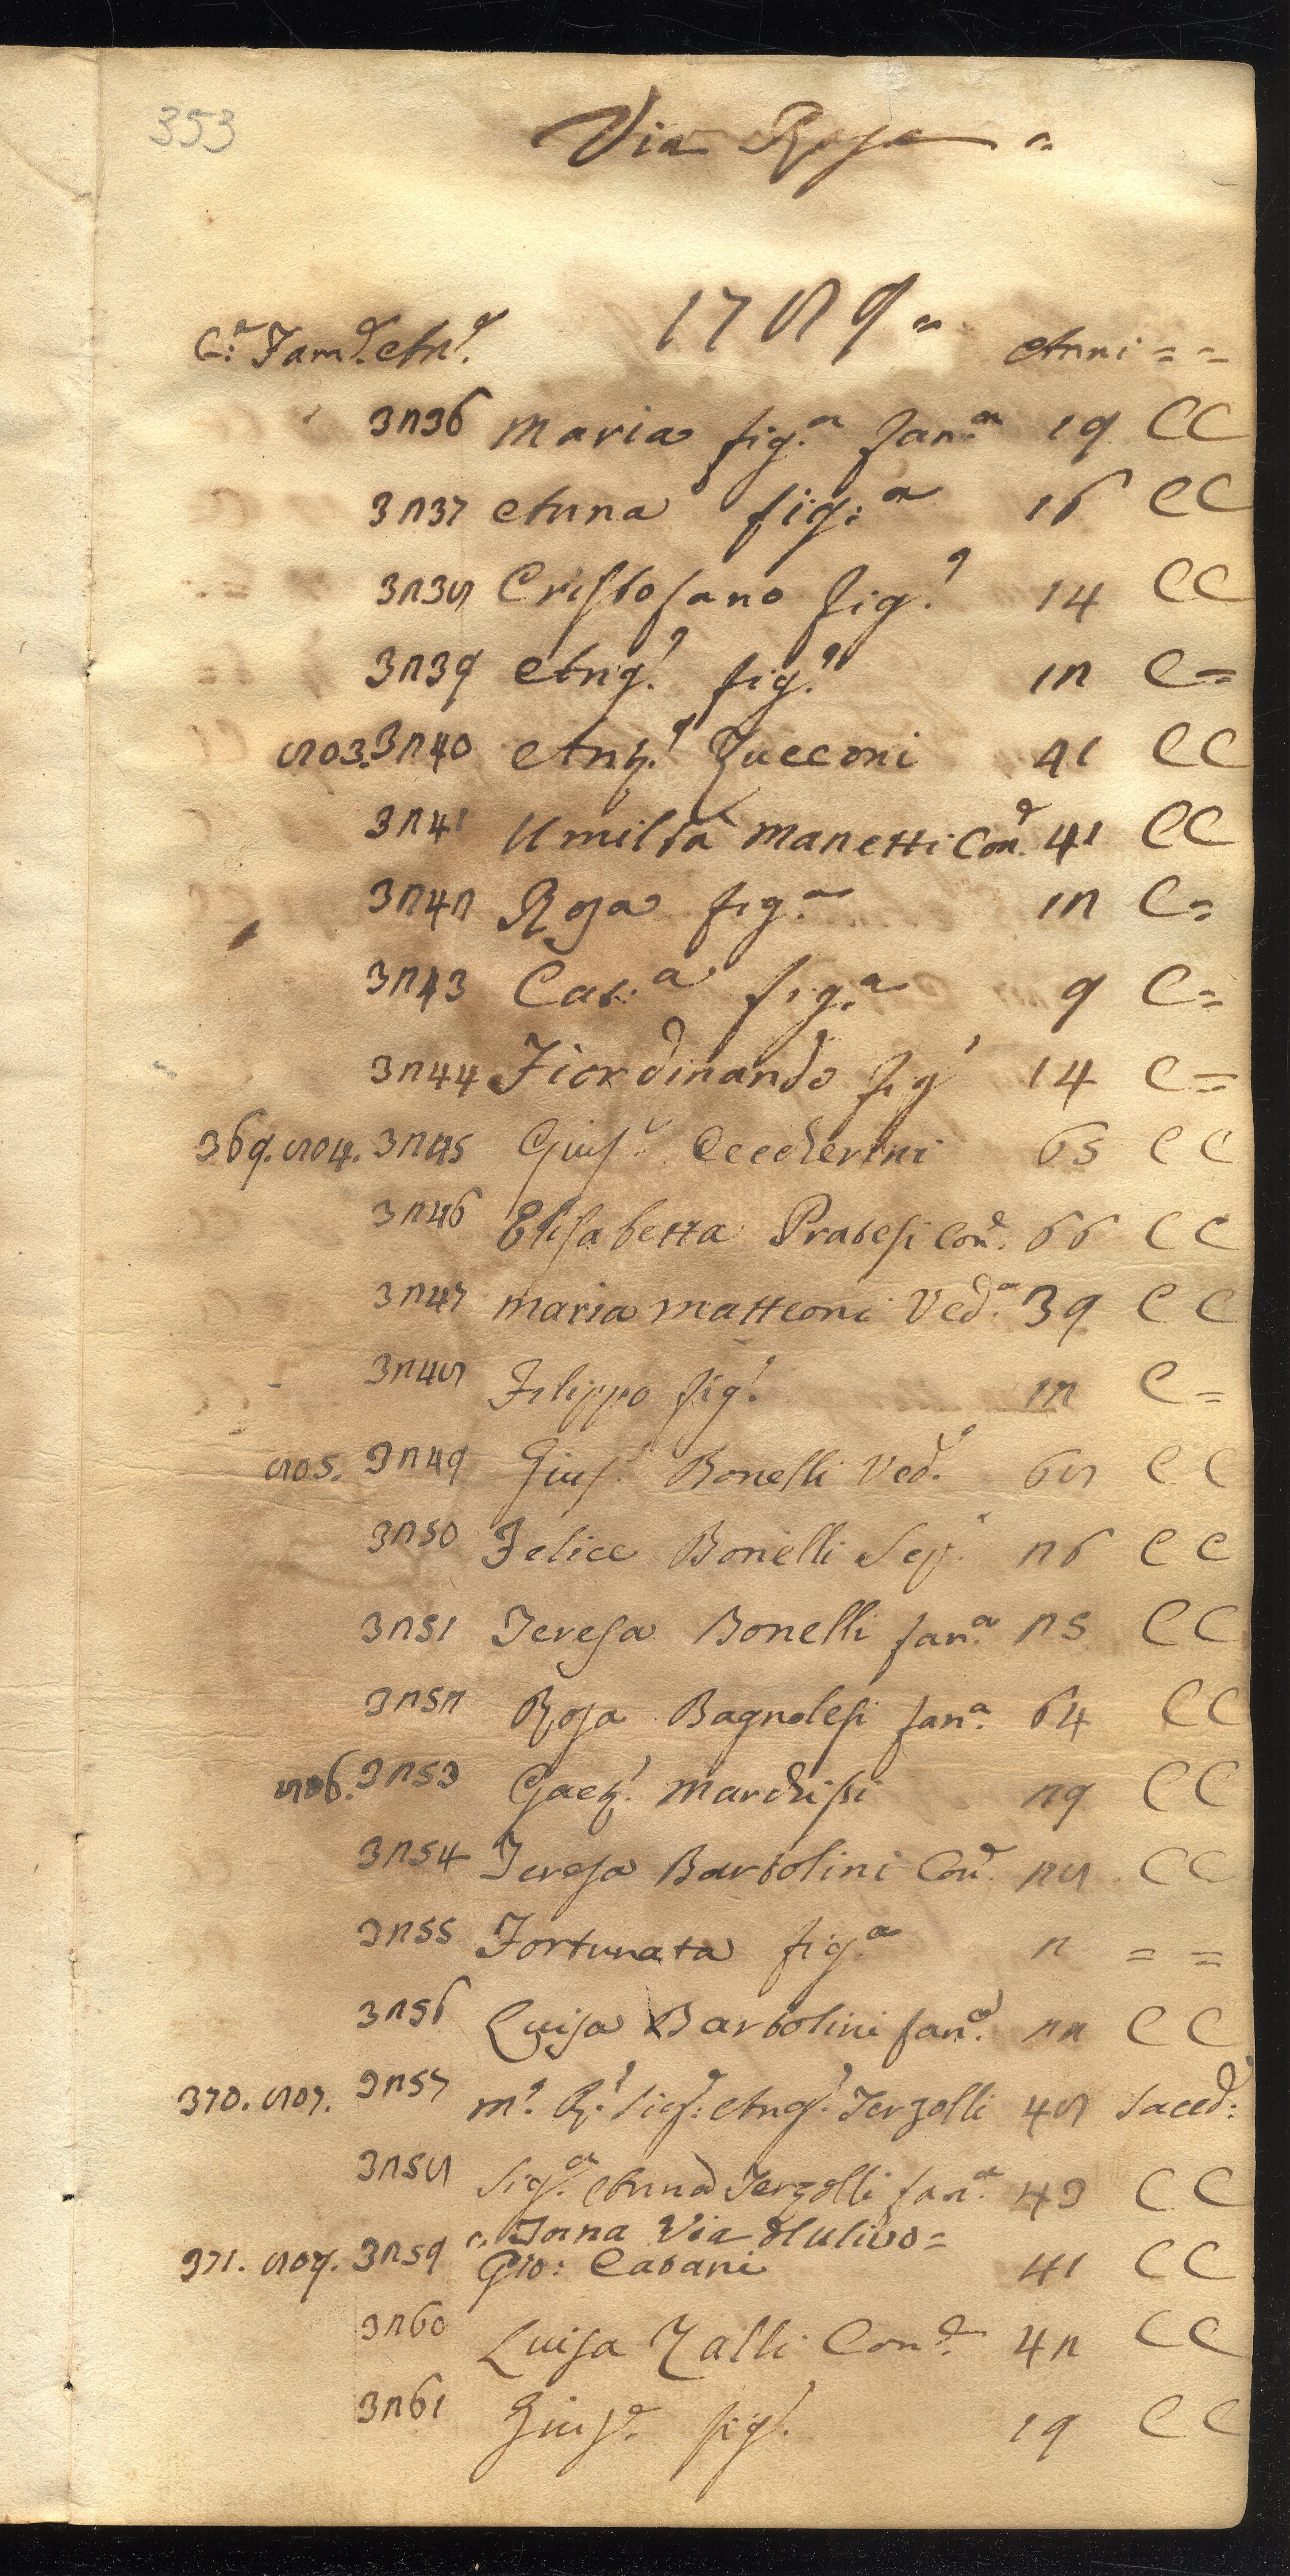 353
Via Rosa =
1789 =
C:a Fam:e An:e Anni = =
3236 Maria fig:a fan:a 19 CC
3237 Anna fig:a 16 CC
3238 Cristofano fig:o 14 CC
3239 Ang:o fig:o 12 C =
803. 3240 Ant:o Zucconi 41 CC
3241 Umiltà Manetti Con:e 41 CC
3242 Rosa fig:a 12 C =
3243 Cat:a fig:a 9 C =
3244 Fiordinando fig:o 14 C =
369. 804. 3245 Gius:e Ceccherini 65 CC
3246 Elisabetta Pratesi Con:e 66 CC
3247 Maria Matteoni Ved:a 39 CC
3248 Filippo fig:o 12 C =
805. 3249 Gius:e Bonelli Ved:o 68 CC
3250 Felice Bonelli 26 CC
3251 Teresa Bonelli fan:a 25 CC
3252 Rosa Bagnolesi fan:a 64 CC
806. 3253 Gaet:o Marchisi 29 CC
3254 Teresa Bartolini Con:e 28 CC
3255 Fortunata fig:a 2 = =
3256 Luisa Bartolini fan:a 22 CC
370. 807. 3257 M:o R:o Sig:e Ang:o Terzolli 48 Sacerd:
3258 Sig:a Anna Terzolli fan:a 43 CC
= Torna Via Hulivo =
371. 808. 3259 Gio: Catani 41 CC
3260 Luisa Zalli Con:e 42 CC
3261 Gius:e fig:o 19 CC